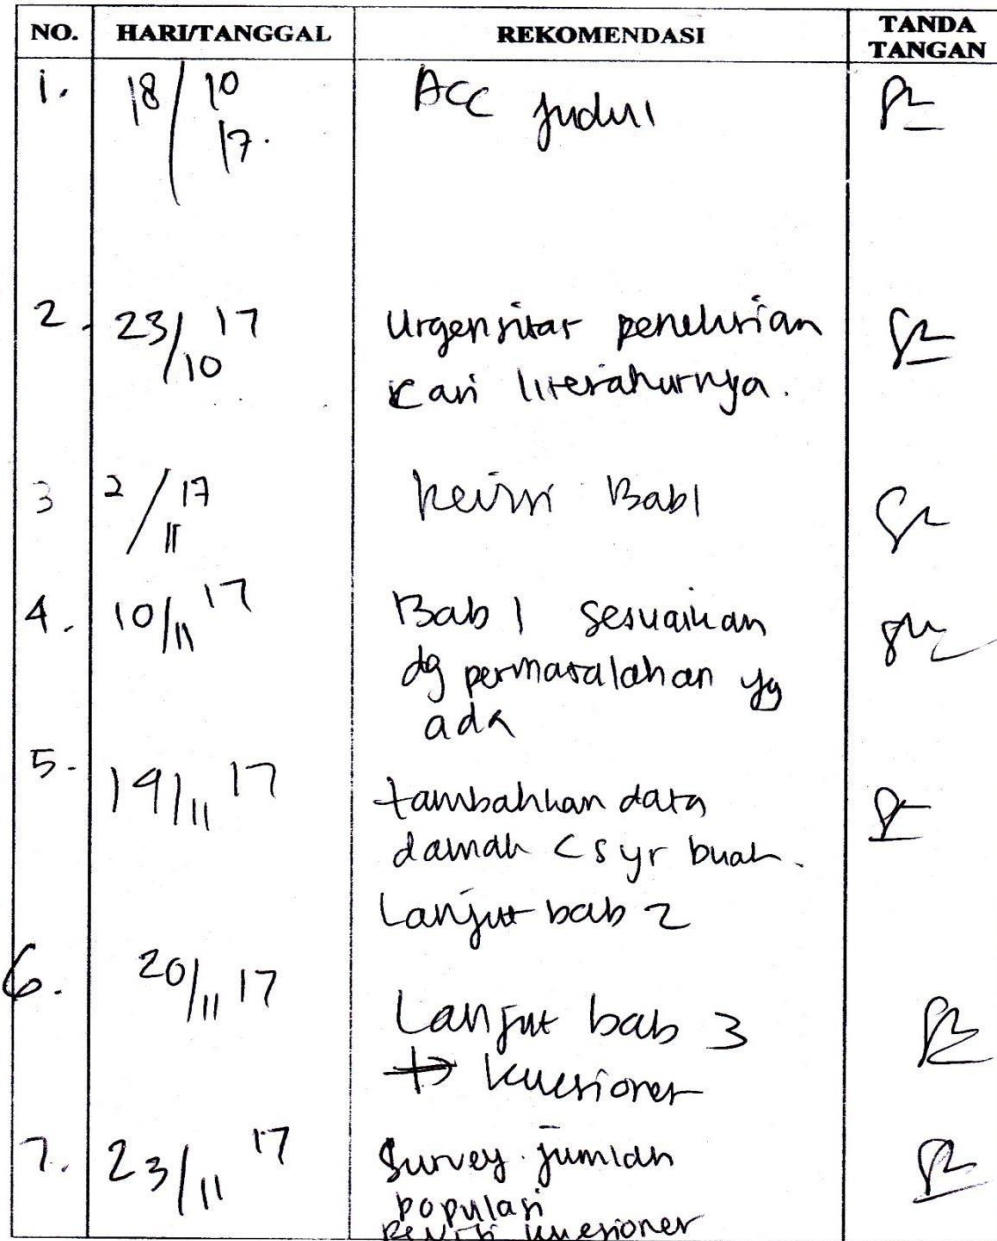 NO. HARI/TANGGAL REKOMENDASI TANDA TANGAN
1. 18/10 17. ACC judul
2. 23/10 17 Urgensitas penelitian
cari literaturnya.
3 2/11 17 Revisi Bab 1
4. 10/11 17 Bab 1 sesuaikan
dg permasalahan yg
ada
5. 14/11 17 tambahkan data
<syr buah.
Lanjut bab 2
6. 20/11 17 Lanjut bab 3
+ kuesioner
7. 23/11 17 Survey jumlah
populasi
Revisi kuesioner